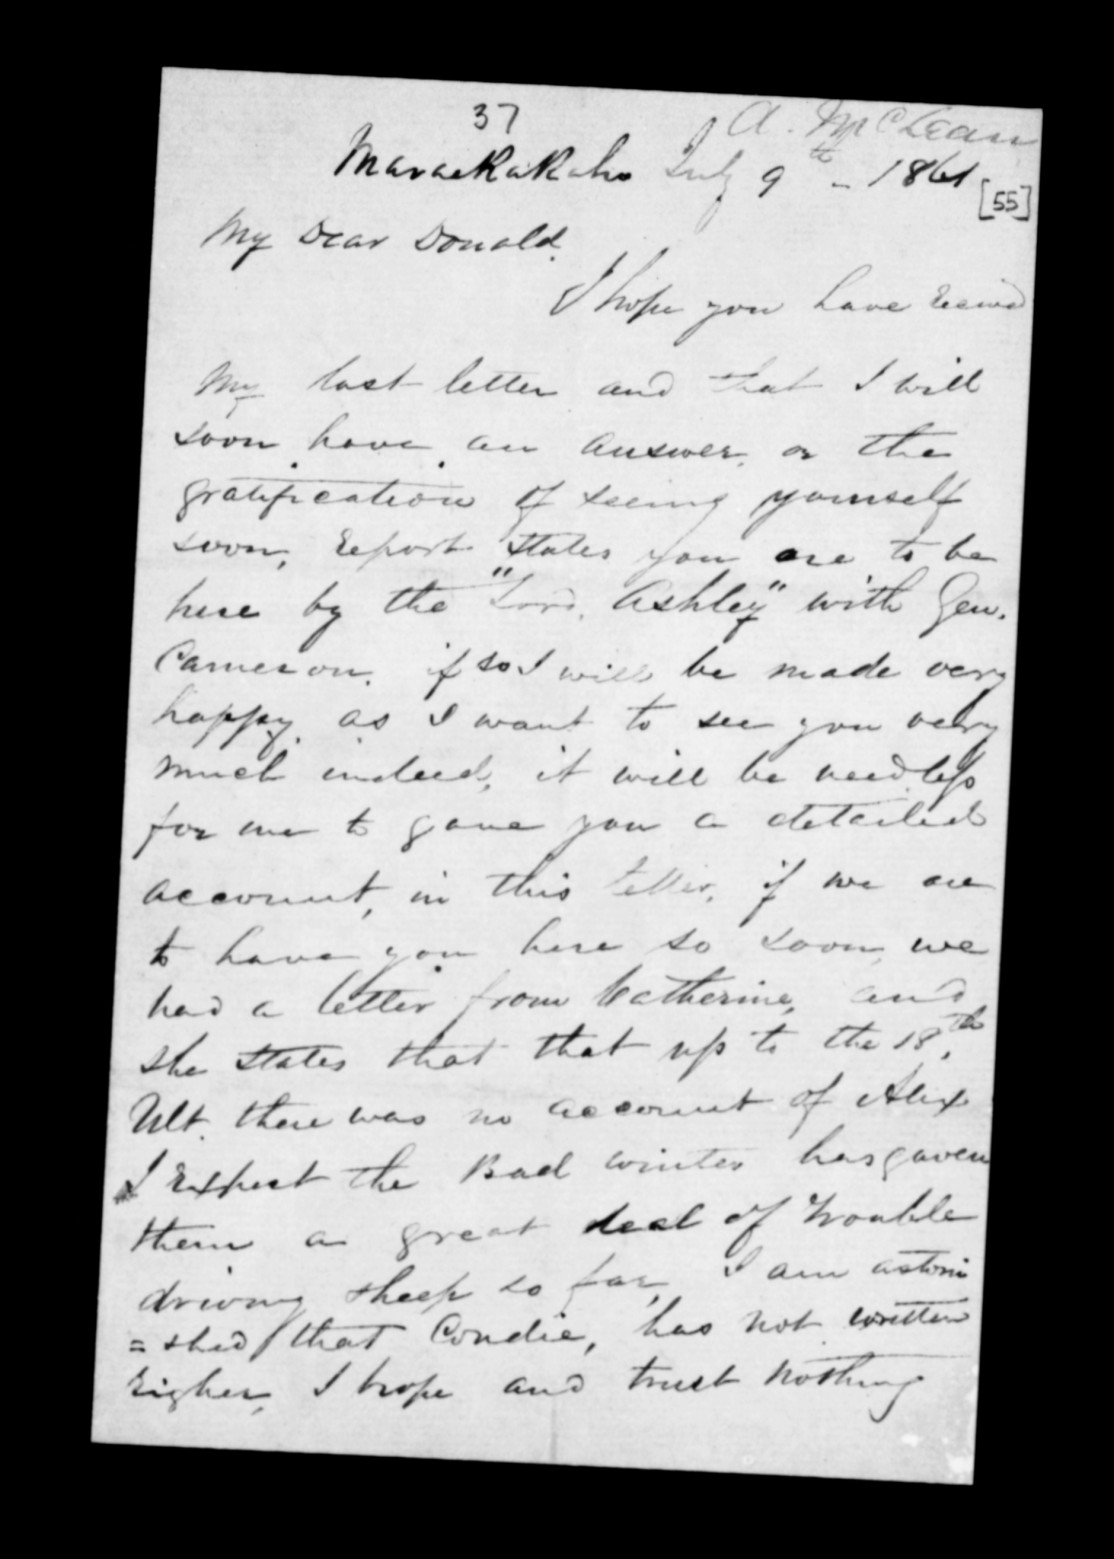 37
A. McLean
Maraekakaho July 9th - 1861
[55]
My Dear Donald.
I hope you have receivd
My last letter and that I will
soon have an answer. or the
gratification of seeing yourself
soon, report states you are to be
here by the "Lord. Ashley" with Gen.
Cameron. if so I will be made very
happy. as I want to see you very
much indeed, it will be needless
for me to gave you a detailed
account, in this letter, if we are
to have you here so soon, we
had a letter from Catherine, and
she states that that up to the 18th,
Ult. there was no account of Alix
I expect the Bad winter has gaven
them a great deal of trouble
driving sheep so far, I am astoni
=shed that Condie, has not written
eigher, I hope and trust nothing